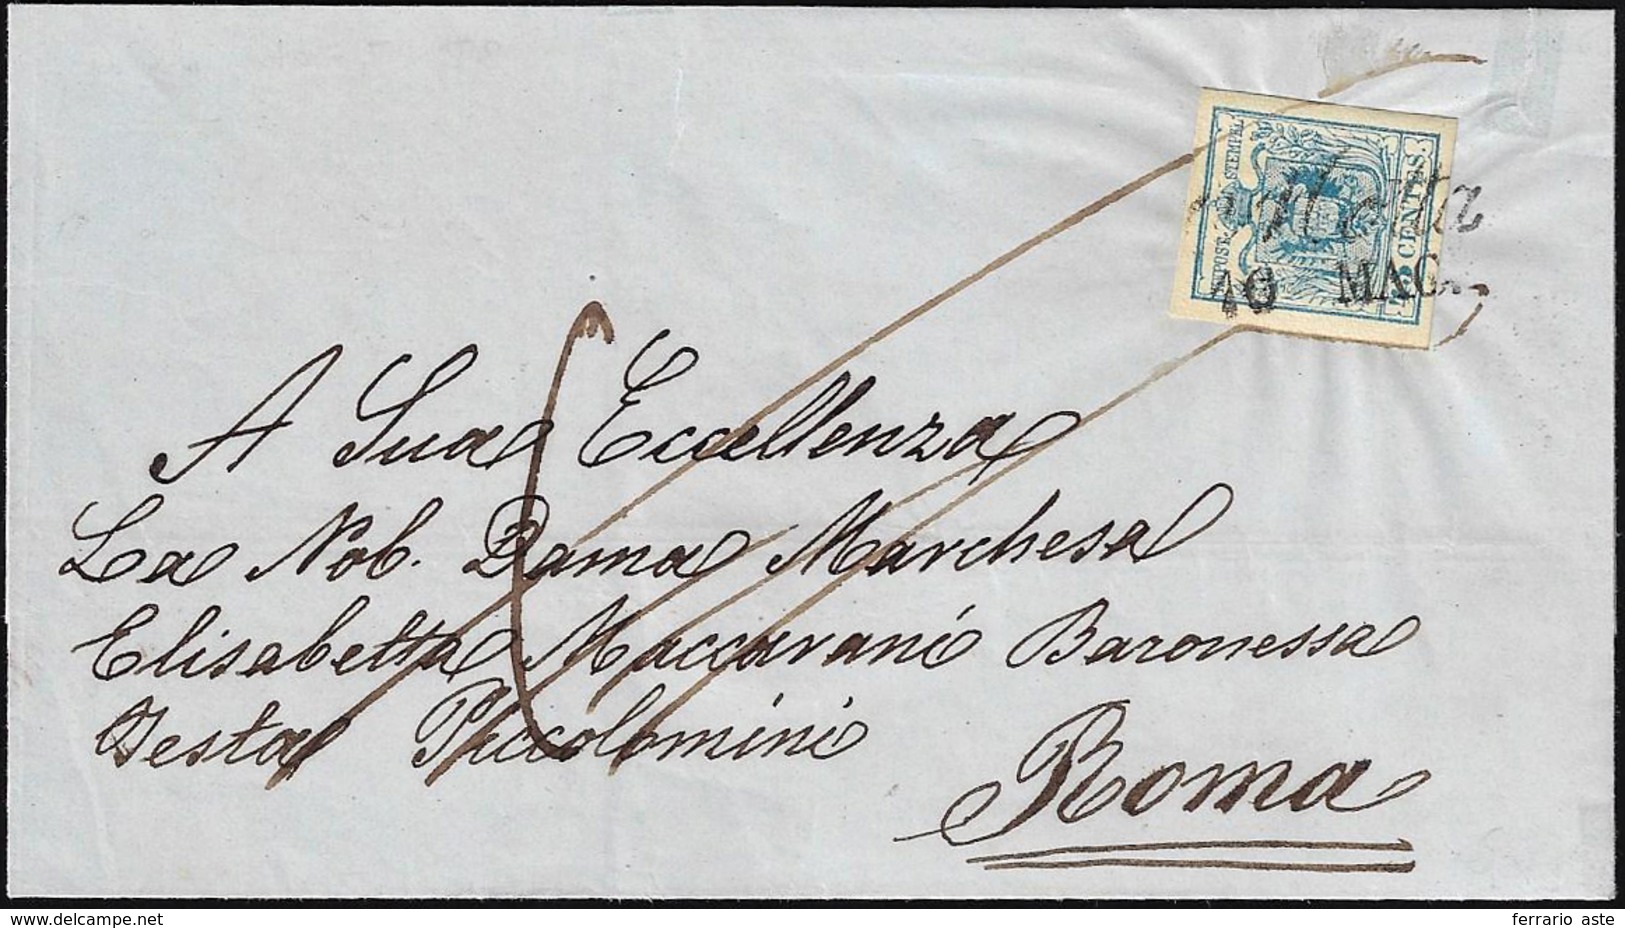 KKPOST-STEMPEL
45 CENTES
10 MAG.
A Sua Eccellenza
La Nob. Dama Marchesa
Elisabetta Maccarani Baronessa
Testa Piccolomini
Roma
www.delcampe.net
ferrario aste